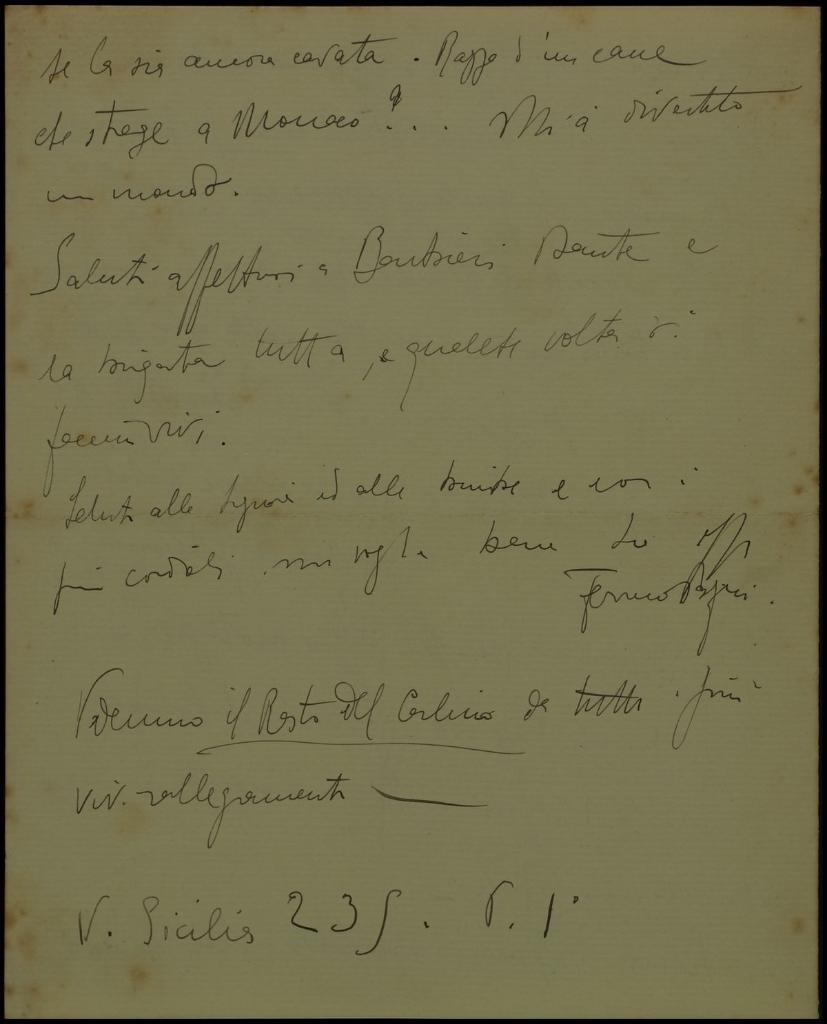 se la sia ancora cavata. Razza d'un cane
che strage a Monaco?... Mi à divertito
un mondo.
Saluti affettuosi a Barbieri Dante e
la brigata tutta, e qualche volta
facciamoci vivi.
Saluti alle Signore ed alle bimbe e voi i
più cordiali. mi voglia bene
Vedemmo il Resto Del Carlino da tutti i più
vivi rallegramenti —
V. Sicilia 235. P. 1°